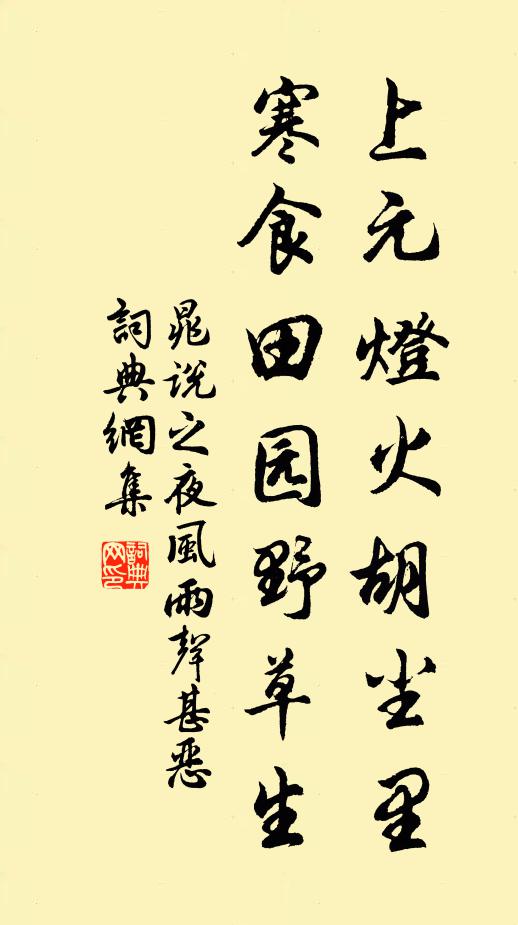 上元燈火胡尘里
寒食田园野草生
晁说之夜風雨聲甚恶
詞典網集
詞典网印